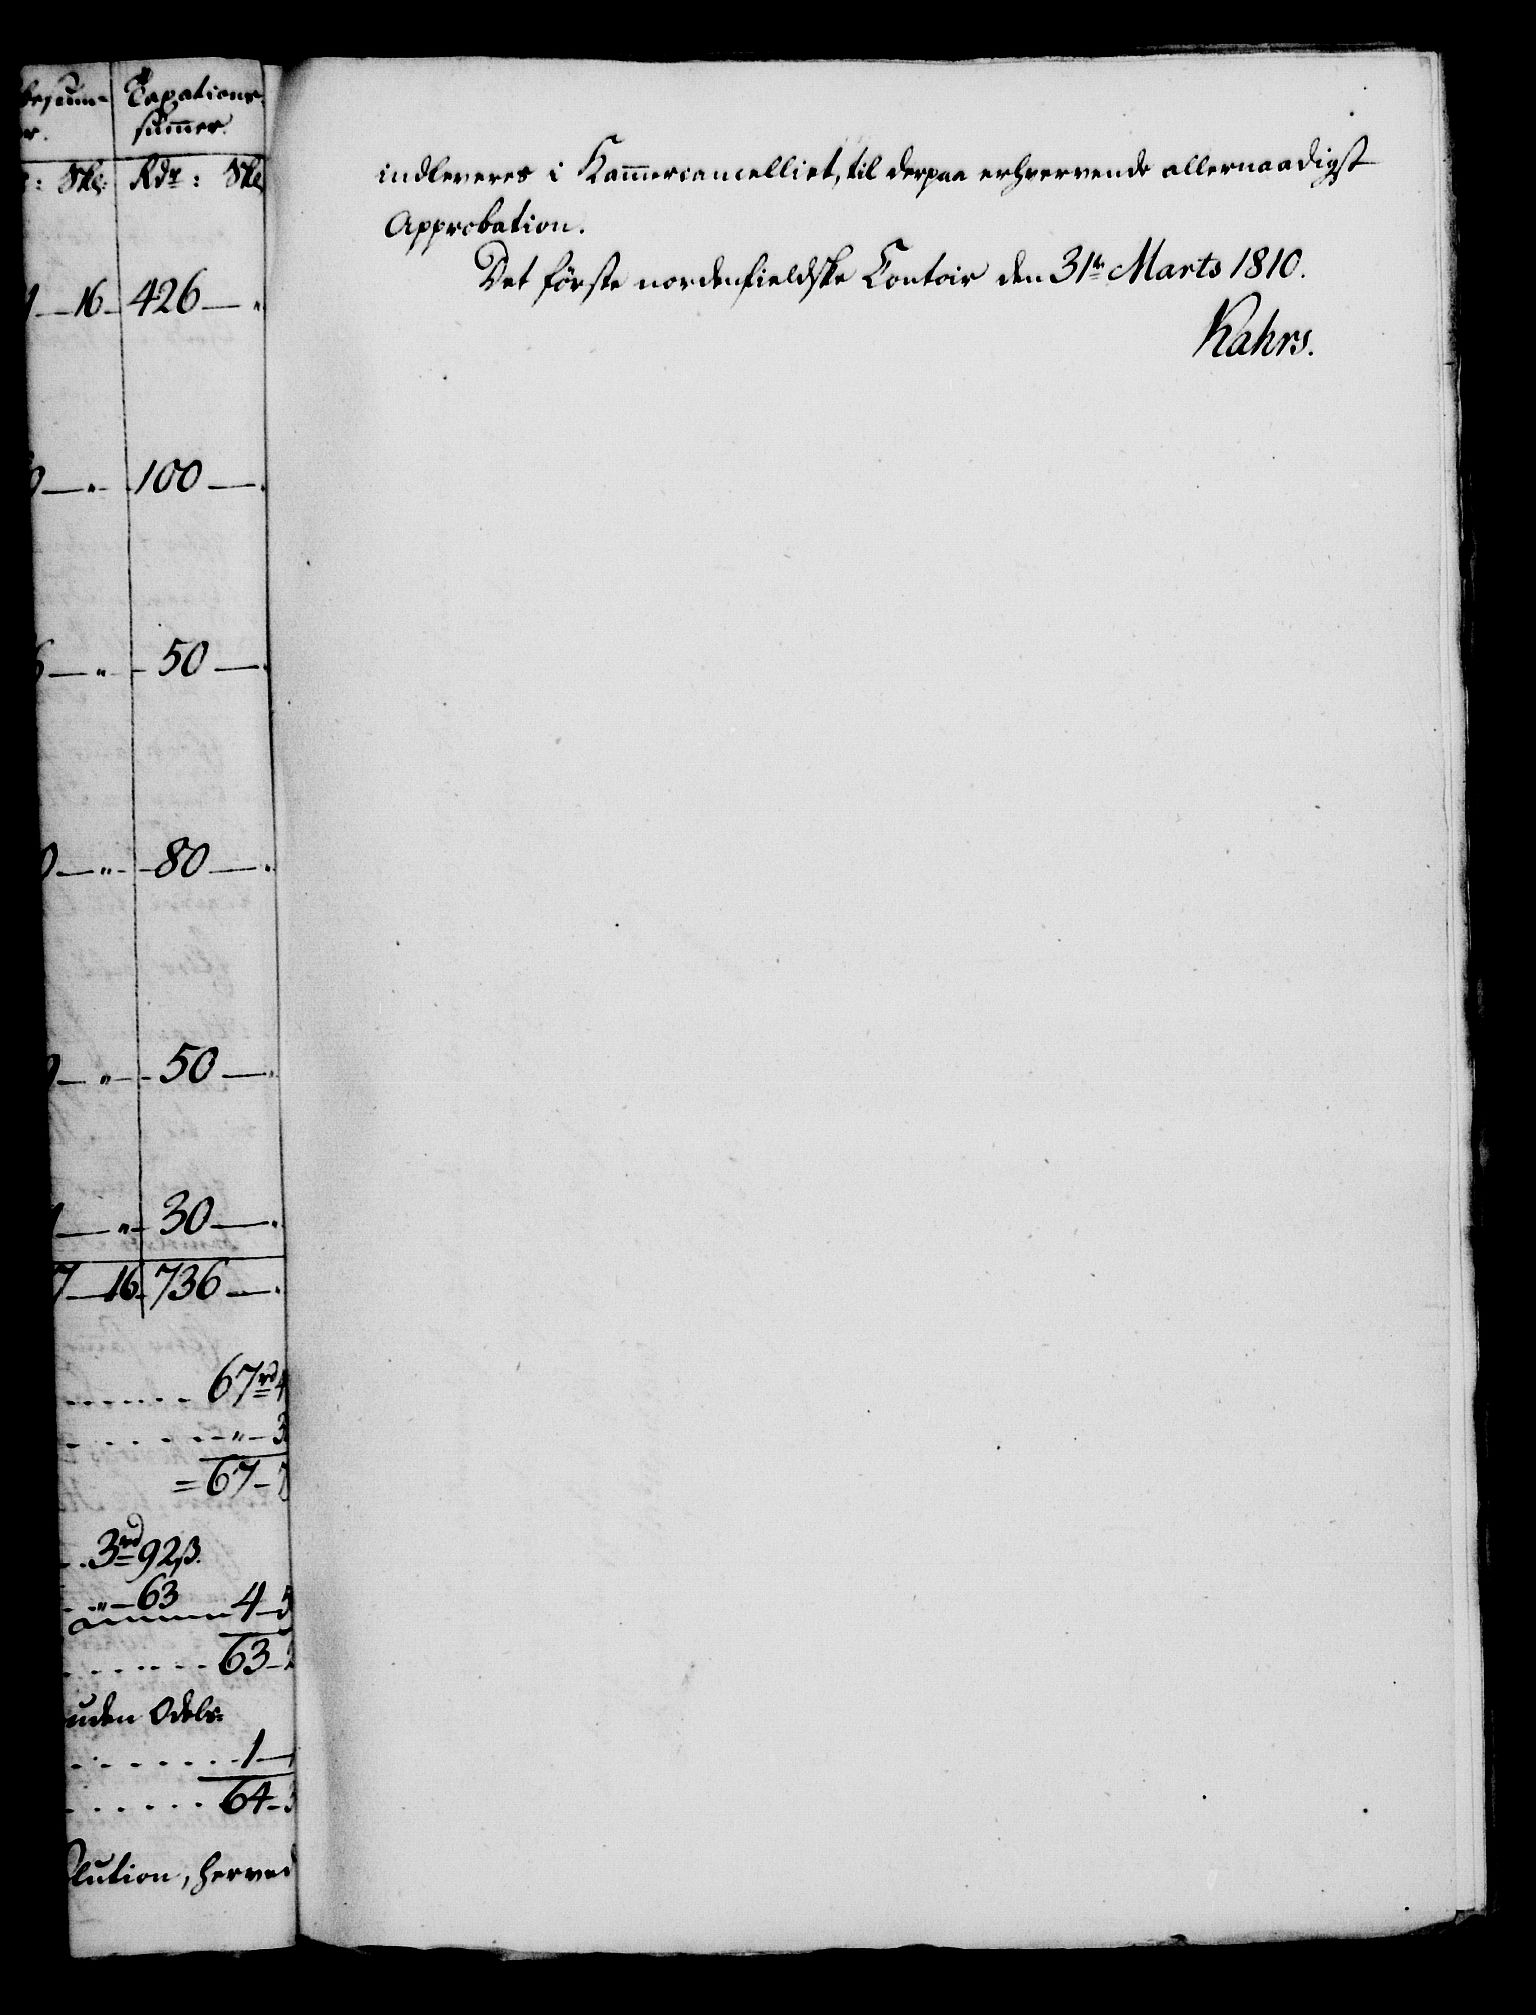 Taxations-
summer.
Rdr : Skl
16 426
100
50
80
50
30
16 736
67rd
67
3rd 92ß.
63
4
63
uden Odels-
1
64
lution, herved
indleveres i Kammercancelliet, til derpaa erhvervende allernaadigst
Approbation.
Det første nordenfieldske Contoir den 31te Marts 1810.
Kahrs.